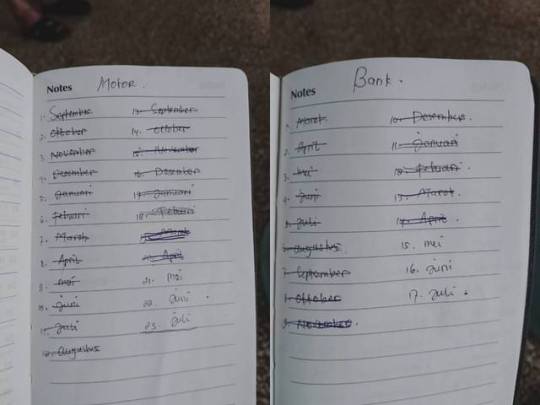 Notes Motor.
1. September 13. September
2. Oktober 14. Oktober
3. November 15. November
4. Desember 16. Desember
5. Januari 17. Januari
6. Febuari 18. Febuari
7. Maret 19. Maret
8. April 20. April
9. mei 21. mei
10. juni 22. juni
11. juli 23. juli
12. augustus
Notes Bank.
1. Maret 10. Desember
2. April 11. Januari
3. mei 12. Febuari
4. juni 13. Maret
5. juli 14. April
6. augustus 15. mei
7. September 16. juni
8. Oktober 17. juli
9. November